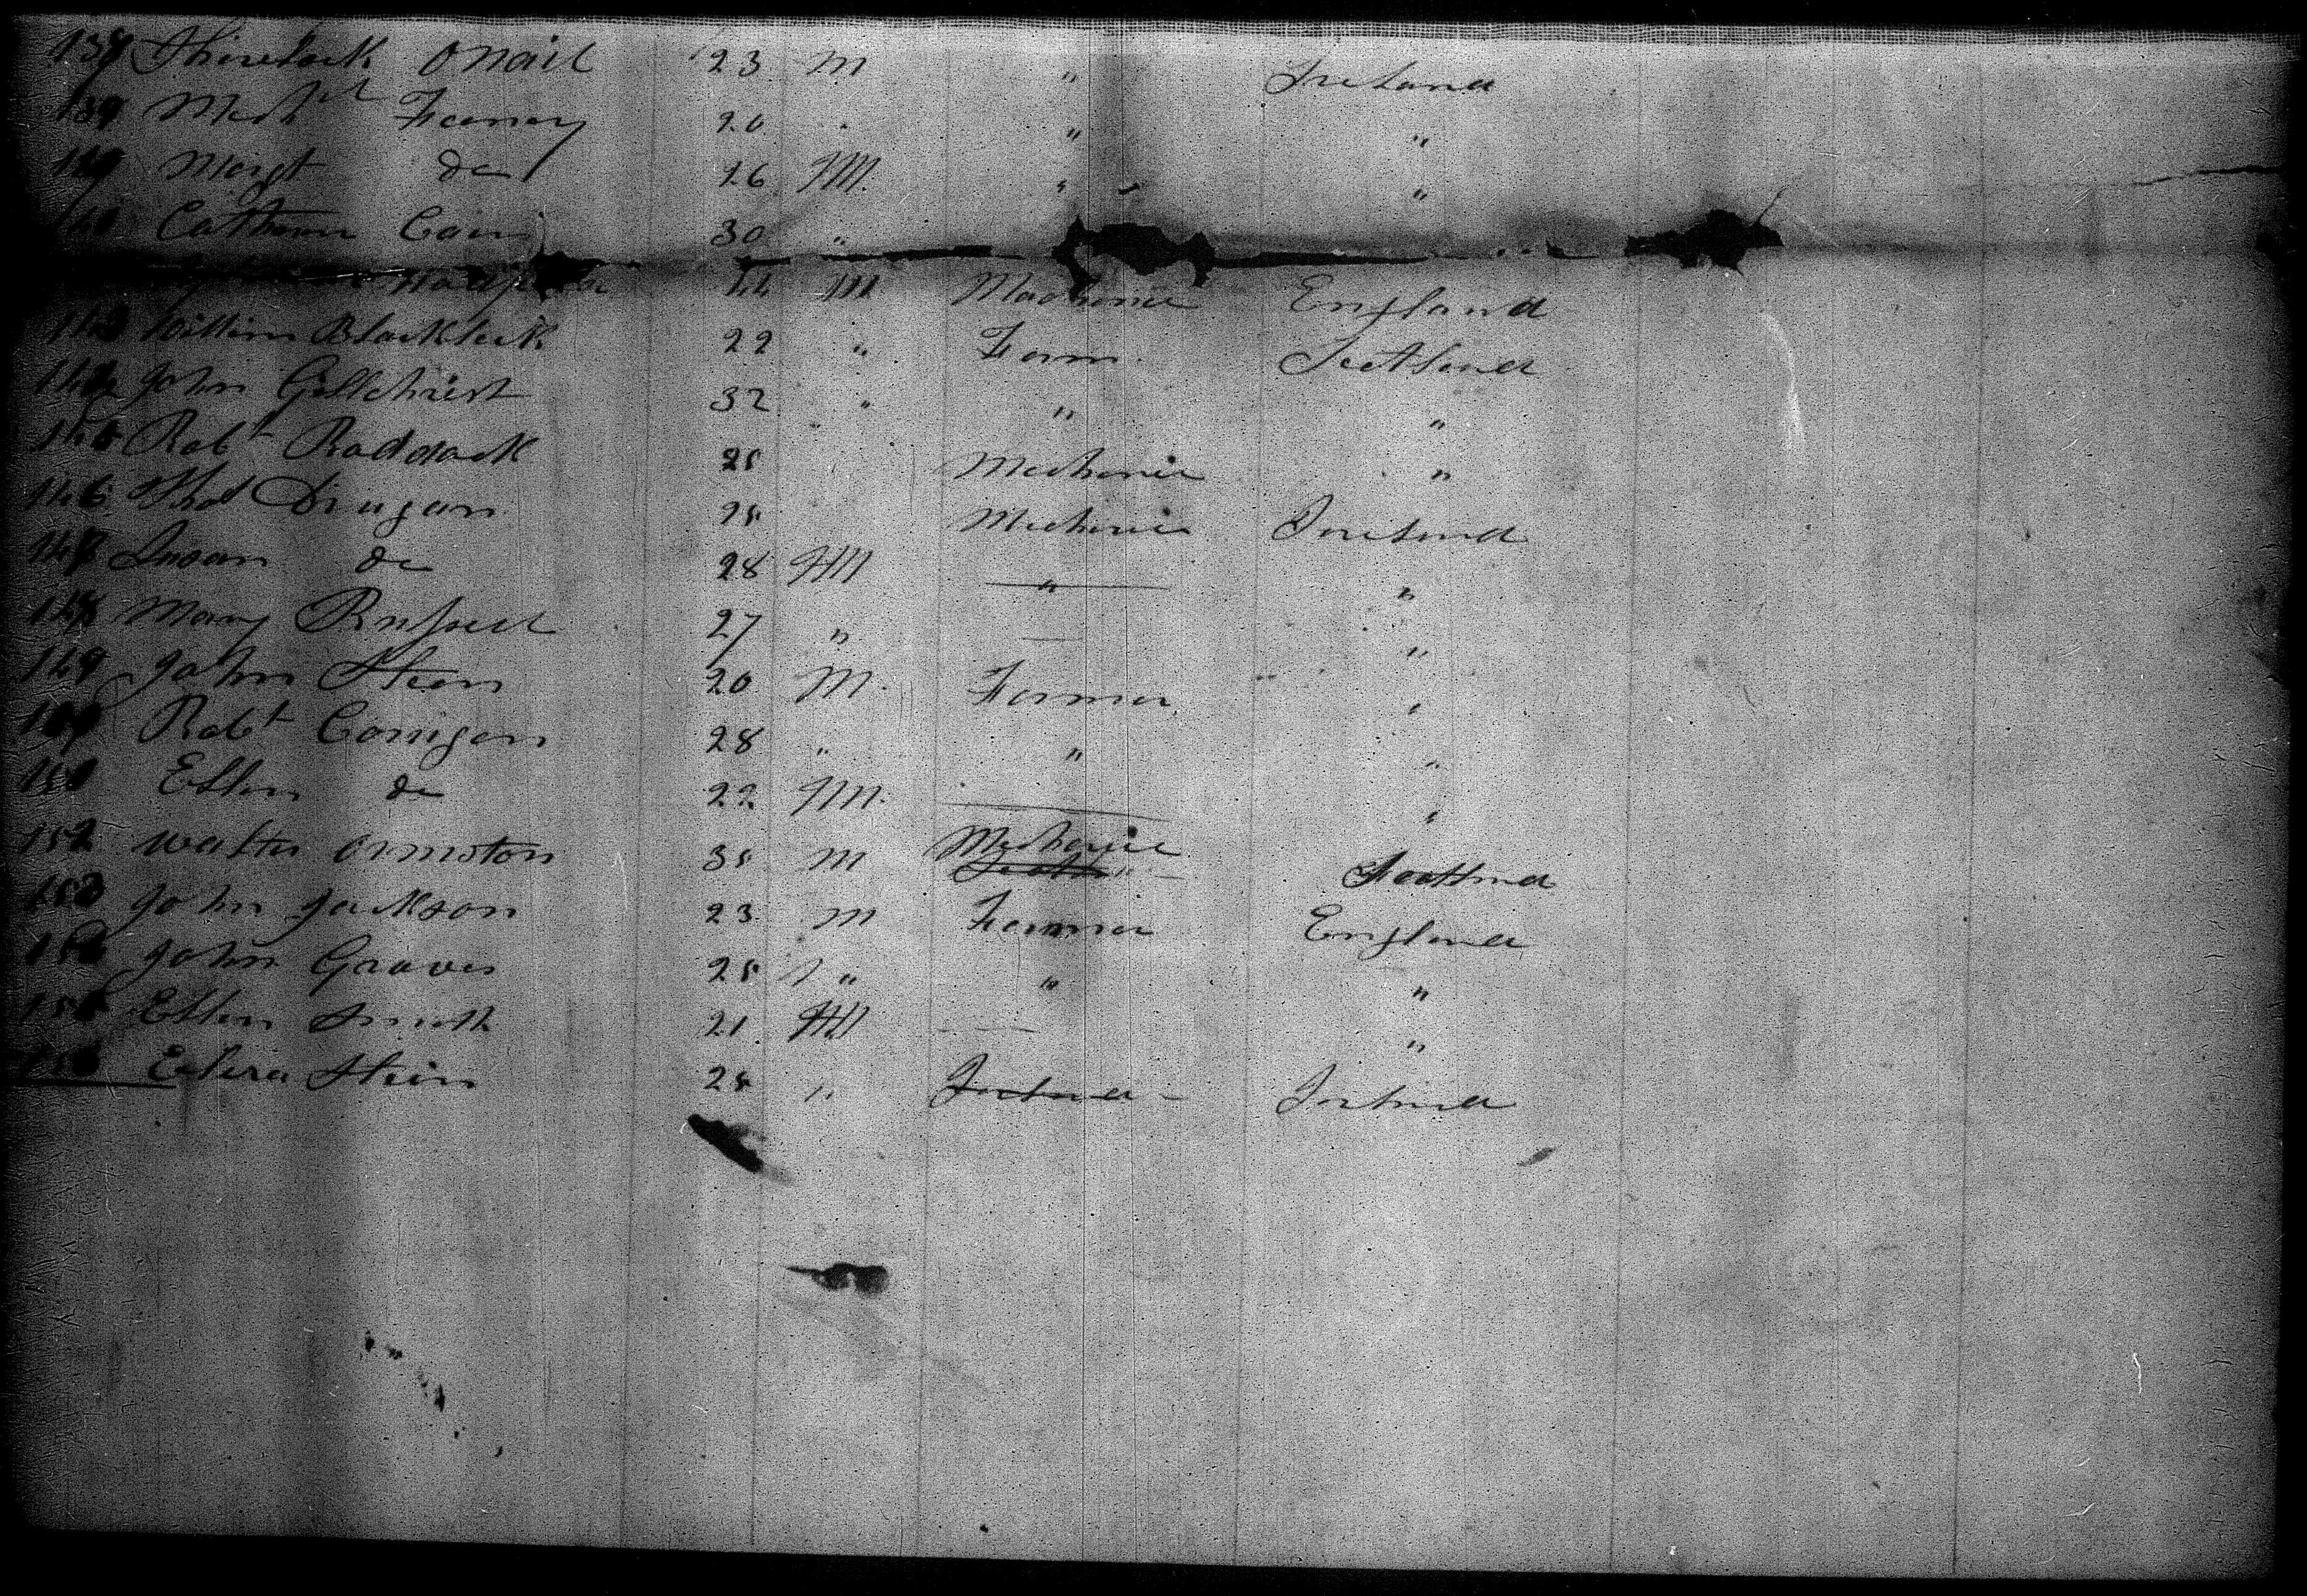 138 O'Nail 23 M " Ireland
139 Mich'l Feeney 20 " " "
Margt do 26 FM " "
Catherine Cain 30 "
44 M Mechanic England
143 William Blacklock 22 " Farm Scotland
144 John Gillchrist 32 " " "
145 Robt Raddack 25 Mechanic "
146 Thos Drugan 25 Mechanic Ireland
147 Susan do 28 FM " "
148 Mary 27 " — "
149 John Steen 20 M. Farmer "
Robt Corrigan 28 " " "
Ellen do 22 FM. — "
152 Walter Ormston 35 M Mechanic Scotland
153 John Jackson 23 M Farmer England
154 John Graves 25 " " "
155 Ellen Smith 21 FM — "
Stein 25 " Ireland - Ireland